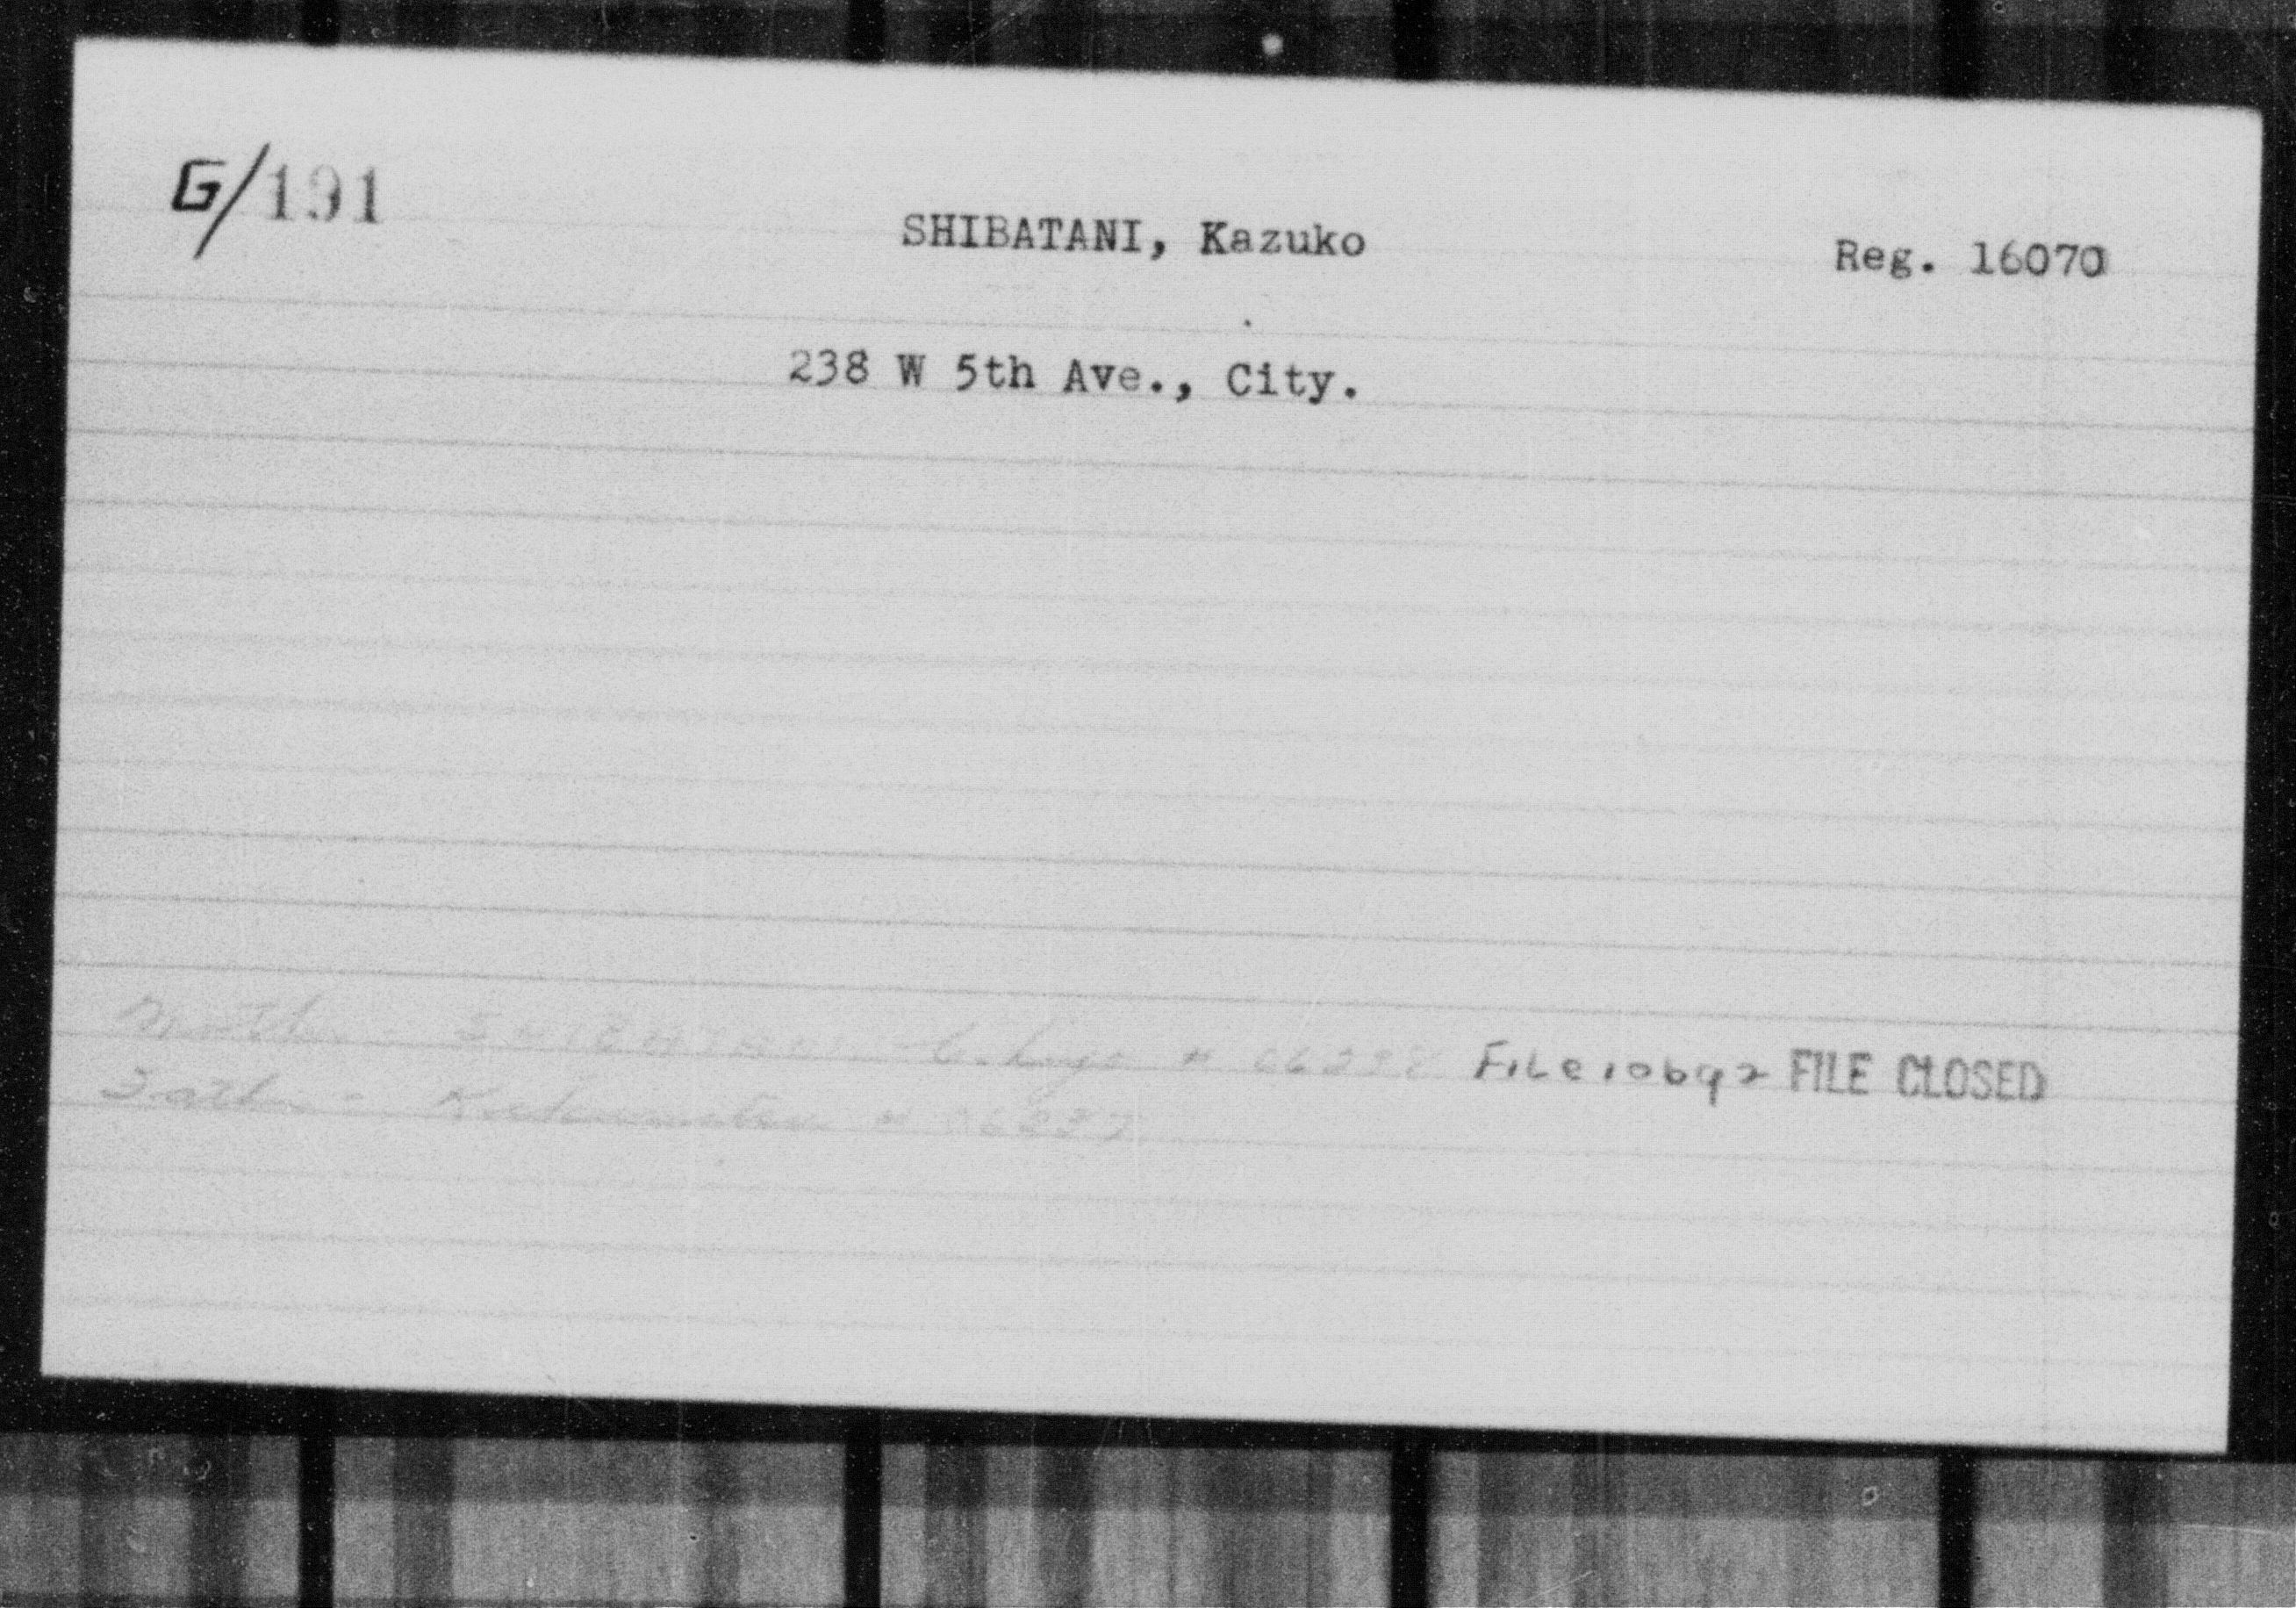 G/191
SHIBATANI, Kazuko
Reg. 16070
238 W 5th Ave., City.
Moth. - SHIBATANI # 06238 File 10692 FILE CLOSED
Fath. - # 06237